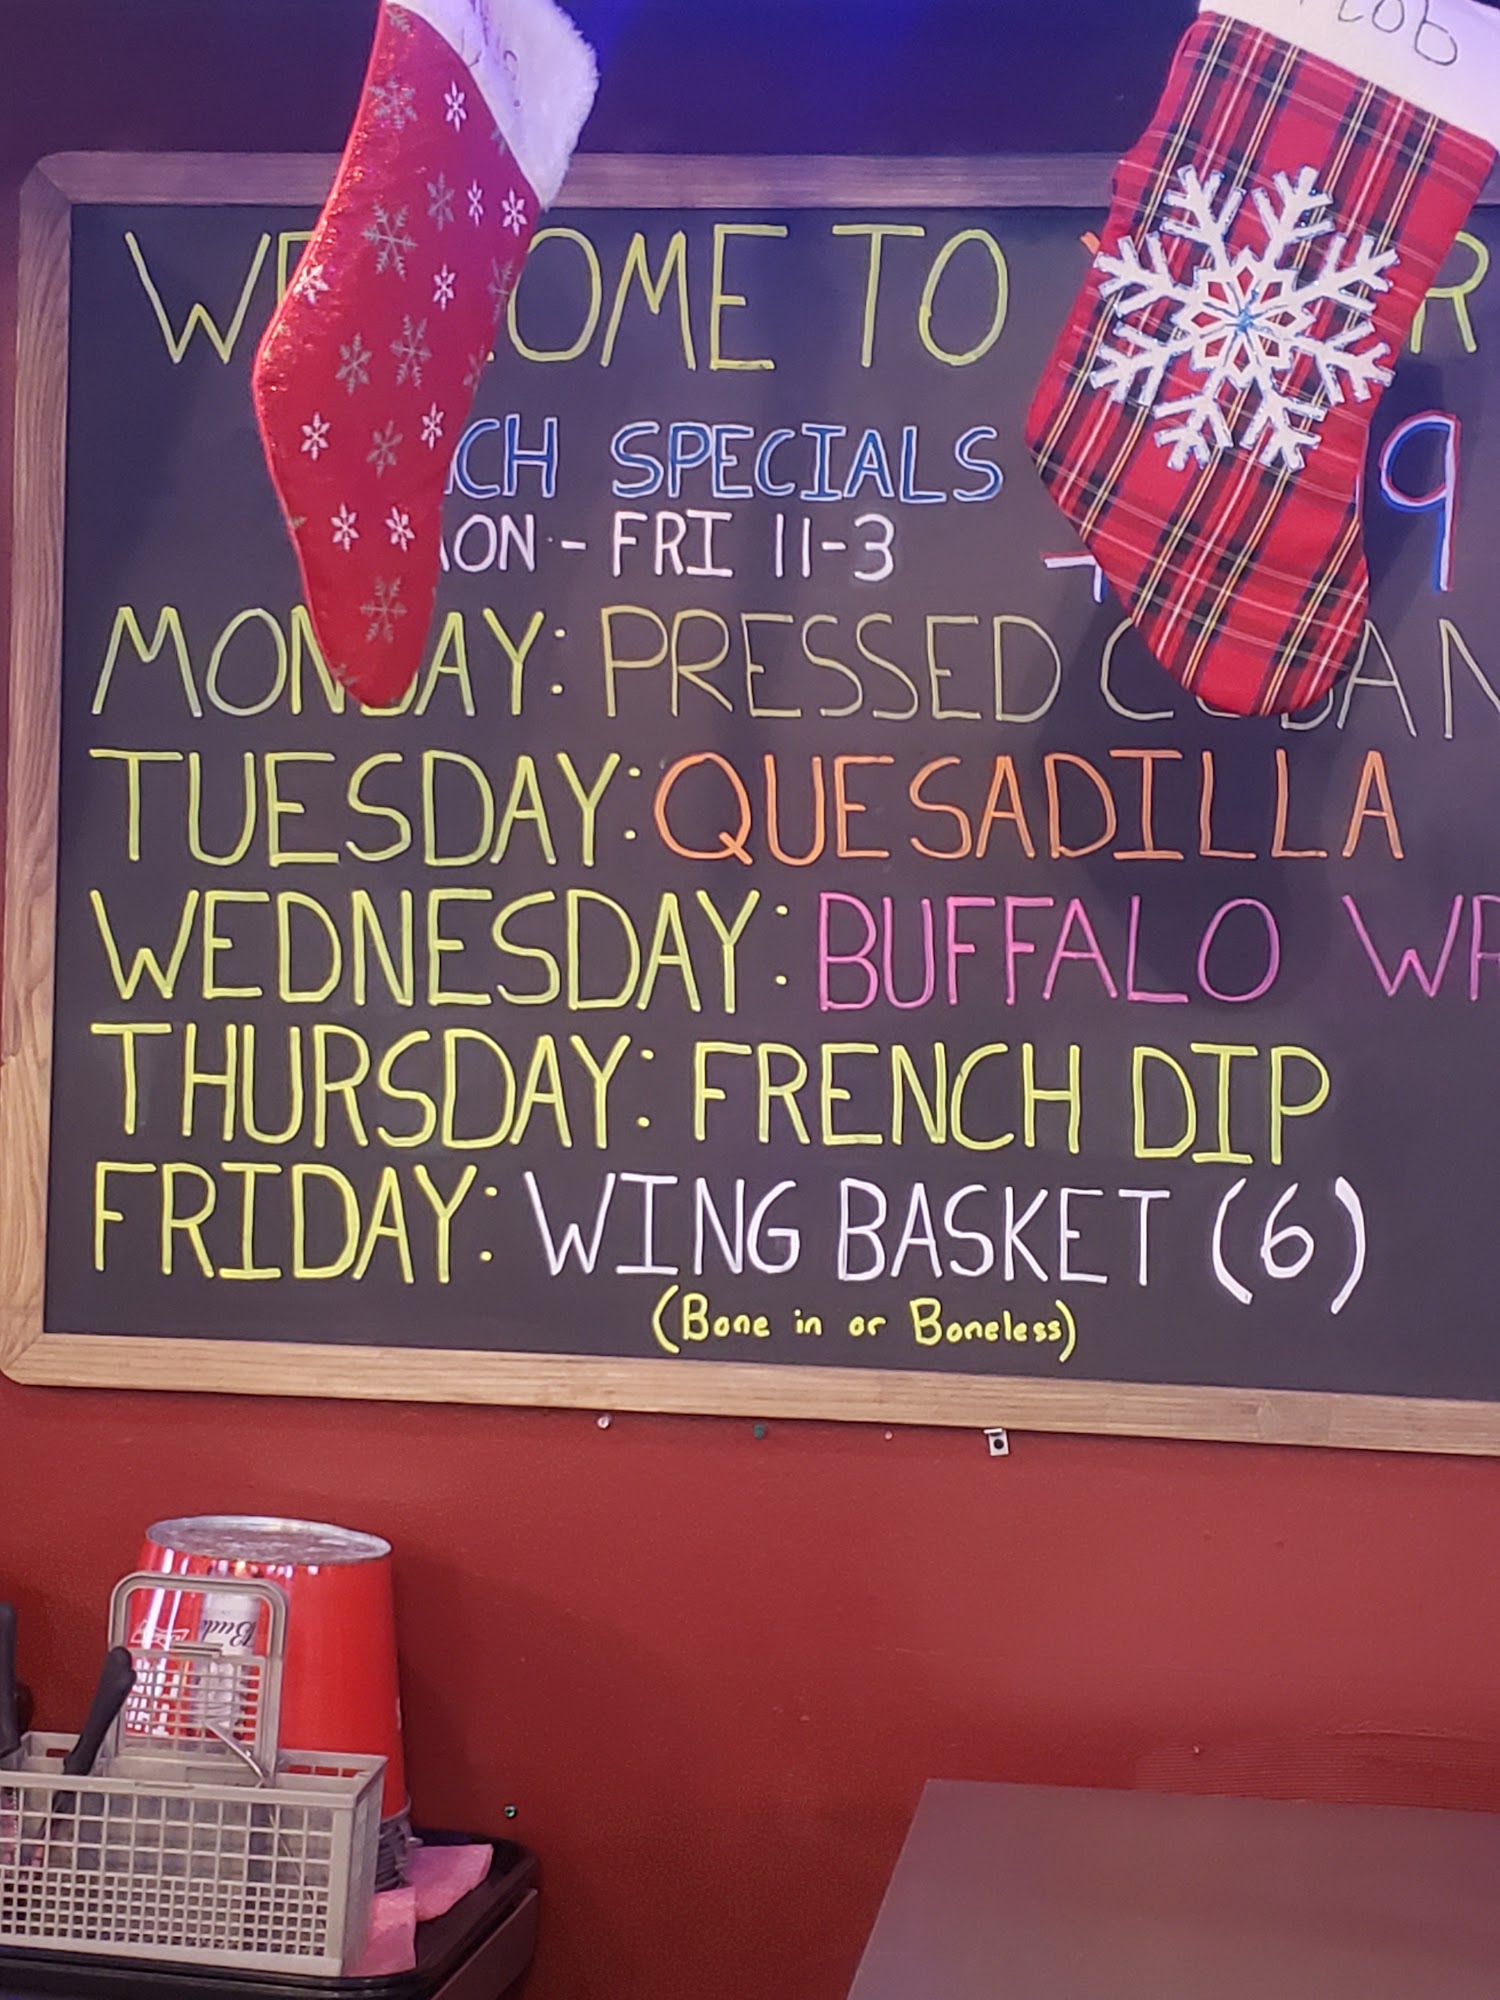 TO
SPECIALS
- FRI 11-3
9
MONDAY: PRESSED
TUESDAY: QUESADILLA
WEDNESDAY: BUFFALO
THURSDAY: FRENCH DIP
FRIDAY: WING BASKET (6)
(Bone in or Boneless)